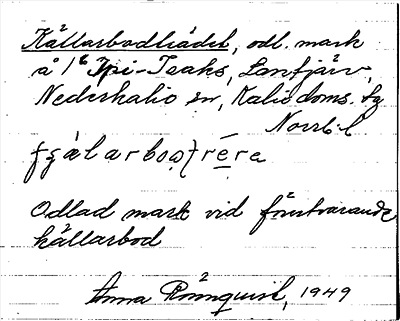 Källarbodträdet, odl. mark
å 1⁶ Ipi-Isaks, Lantjärv,
Nederkalix sn, Kalix doms. fg
Norrb. l
källarbod
Odlad mark vid förutvarande
Anna Rönnquist, 1949